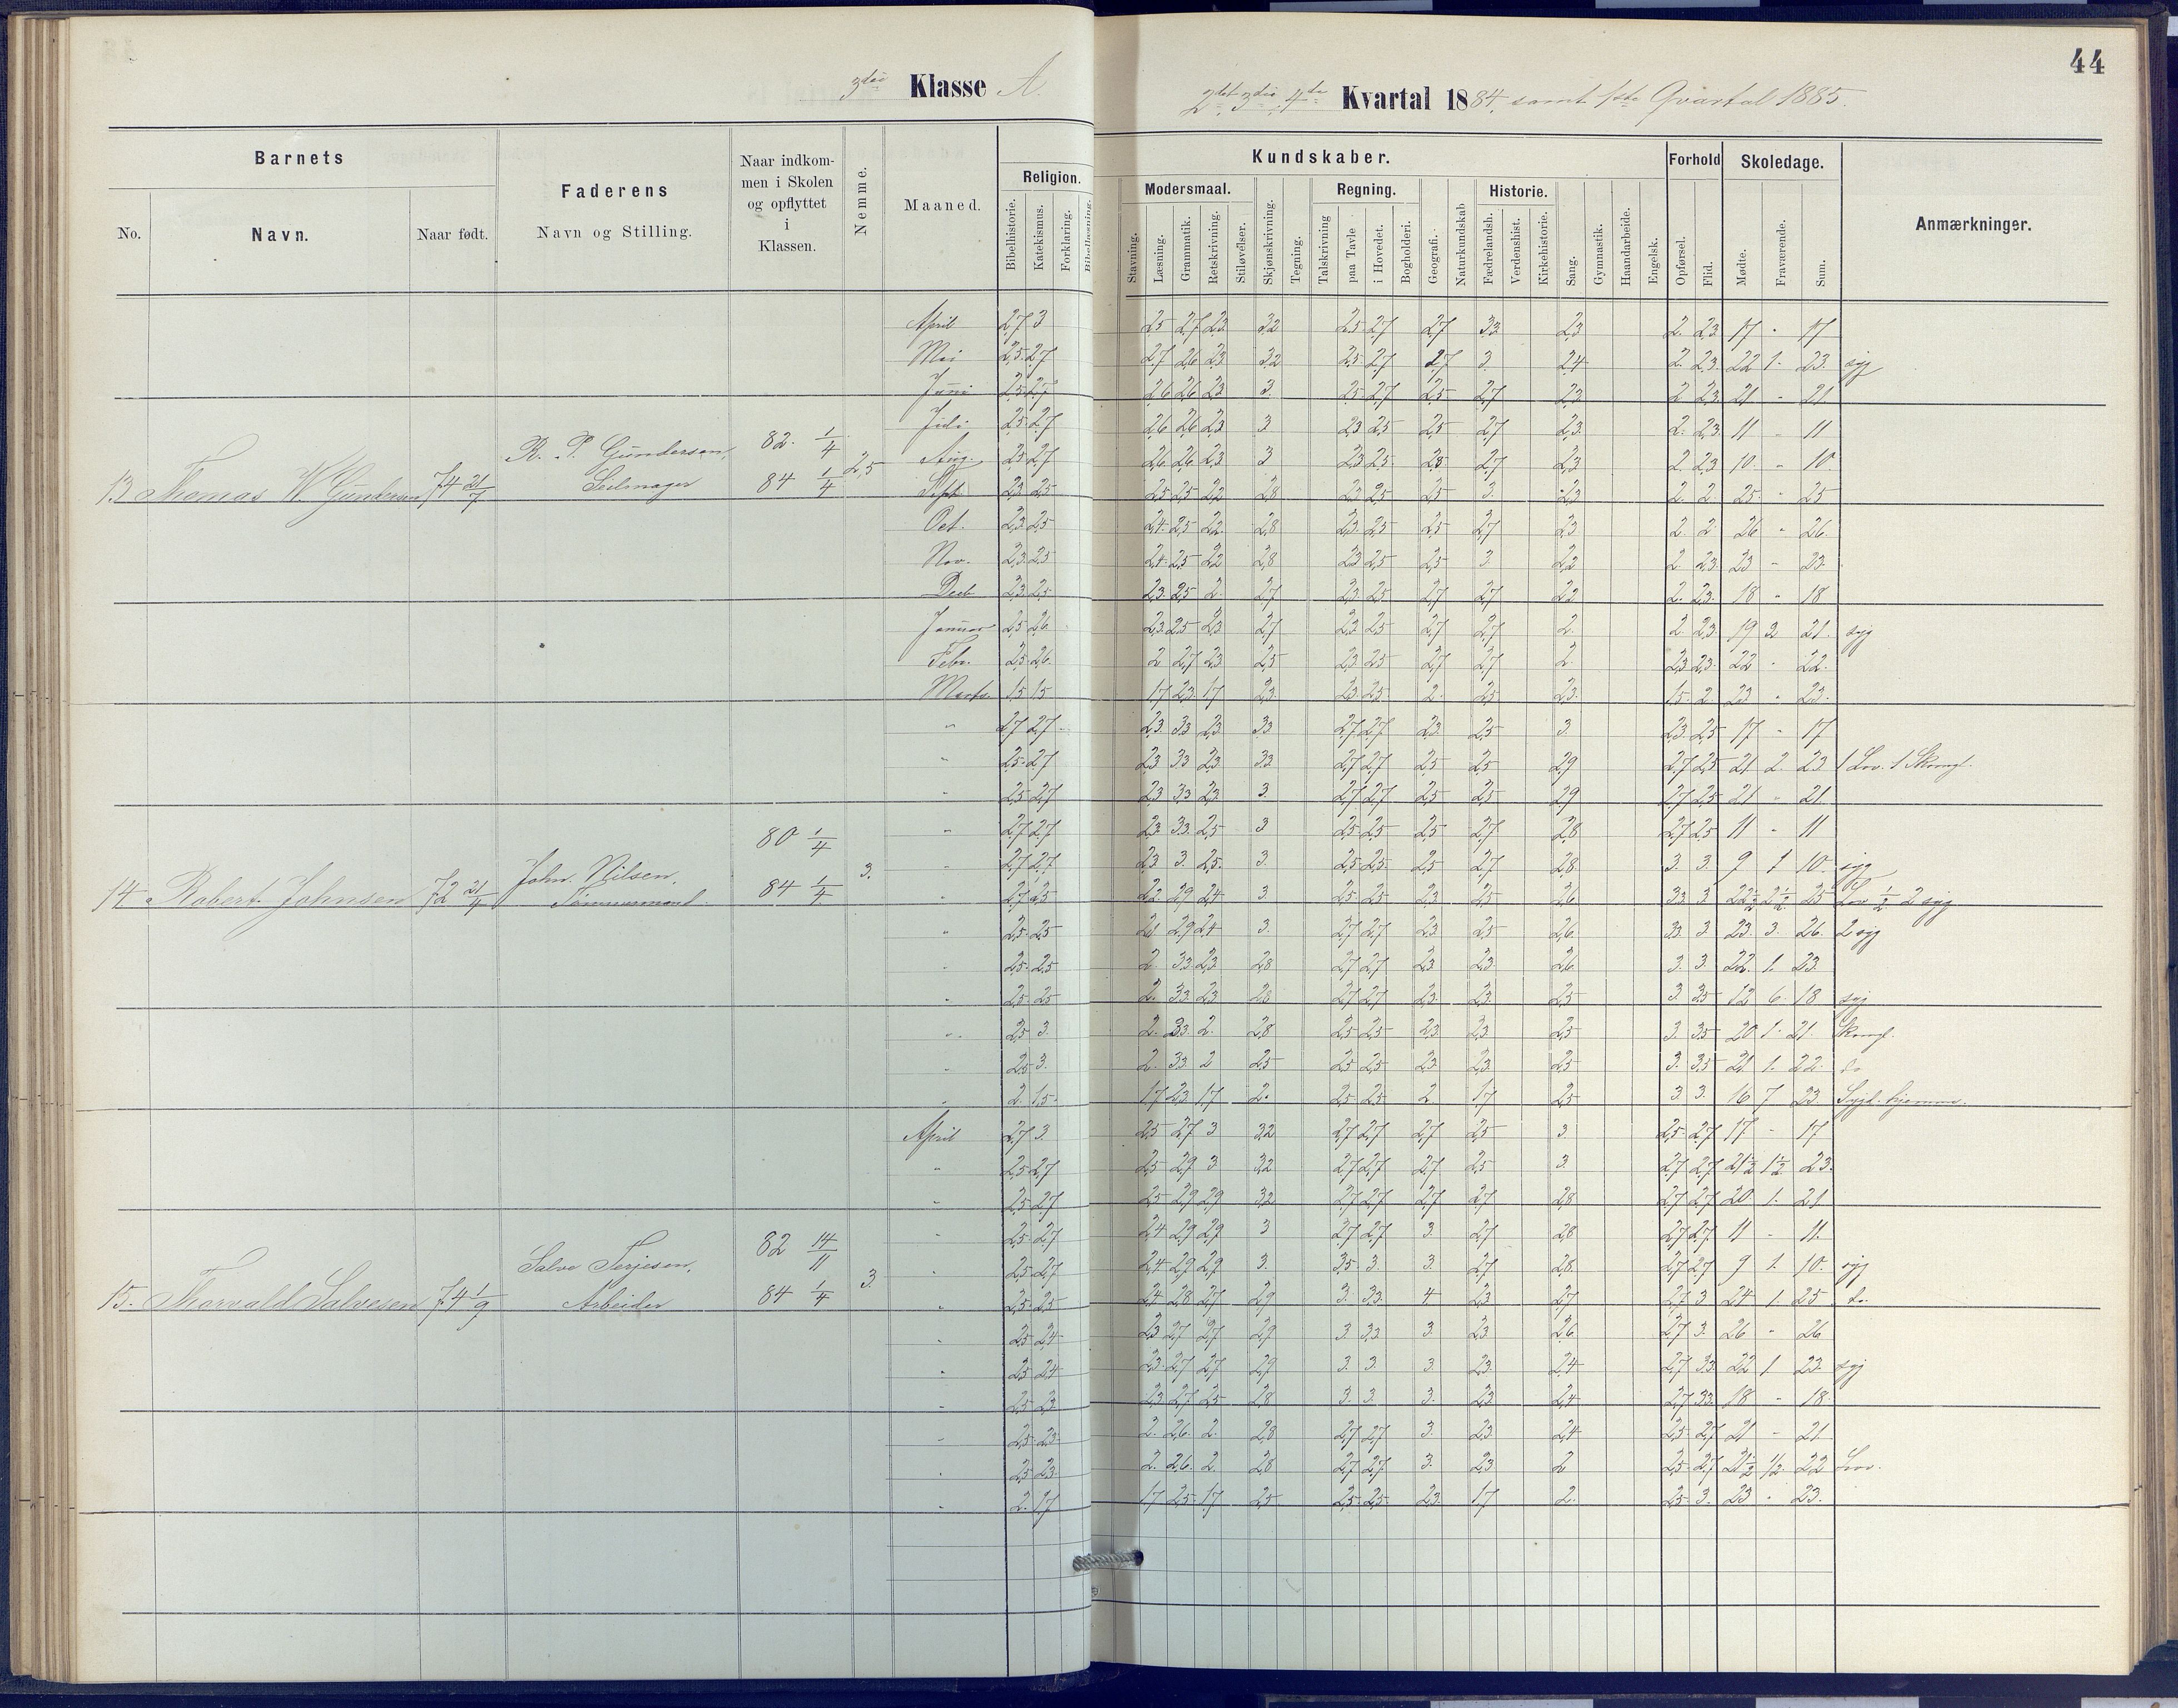 44
3die Klasse A.
2det 3die 4de Kvartal 1884, samt 1ste Qvartal 1885.
Barnets
No.
Navn.
Naar født.
Faderens
Navn og Stilling.
Naar indkom-
men i Skolen
og opflyttet
i
Klassen.
Nemme.
Maaned.
Kundskaber.
Religion.
Bibelhistorie.
Katekismus.
Forklaring.
Bibellæsning.
Modersmaal.
Stavning.
Læsning.
Grammatik.
Retskrivning.
Stiløvelser.
Skjønskrivning.
Tegning.
Regning.
Talskrivning
paa Tavle
i Hovedet.
Bogholderi.
Geografi.
Naturkundskab
Historie.
Fædrelandsh.
Verdenshist.
Kirkehistorie.
Sang.
Gymnastik.
Haandarbeide.
Engelsk.
Forhold
Opførsel.
Flid.
Skoledage.
Mødte.
Fraværende.
Sum.
Anmærkninger.
April 2,7 3 2,5 2,7 2,3 3,2 2,5 2,7 2,7 3,3 2,3 2. 2,3 17 - 17
Mai 2,5 2,7 2,7 2,6 2,3 3,2 2,5 2,7 2,7 3. 2,4 2. 2,3. 22 1. 23. syg
Juni 2,5 2,7 2,6 2,6 2,3 3. 2,5 2,7 2,5 2,7 2,3 2 2,3. 21 - 21
Juli 2,5 2,7 2,6 2,6 2,3 3 2,3 2,5 2,5 2,7 2,3. 2. 2,3 11 - 11
Aug. 2,5 2,7 2,6 2,6 2,3 3 2,3 2,5 2,3 2,7 2,3 2. 2,3 10. - 10
Sept. 2,3 2,5 2,5 2,5 2,2 2,8 2,3 2,5 2,5 3. 2,3 2. 2. 25 - 25
13 Thomas W. Gundersen 74 21/7 R. P. Gundersen, Seilmager 82. 1/4 84 1/4 2,5
Oct. 2,3 2,5 2,4 2,5 2,2 2,8 2,3 2,5 2,5 2,7 2,3 2. 2 26 - 26
Nov. 2,3 2,5 2,4 2,5 2,2 2,8 2,3 2,5 2,5 3. 2,2 2. 2,3 23 - 23
Decb 2,3 2,5 2,3 2,5 2 2,7 2,3 2,5 2,7 2,7 2,2 2. 2,3. 18 - 18
Januar 2,5 2,6 2,3 2,5 2,3 2,7 2,3 2,5 2,7 2,7 2. 2. 2,3. 19 2 21. syg
Febr. 2,5 2,6 2 2,7 2,3 2,5 2,3 2,5 2,7 2,7 2. 2,3 2,3. 22 - 22.
Marts. 1,5 1,5 1,7 2,3 1,7 2,3. 2,3 2,5 2. 2,5 2,3. 1,5. 2. 23 - 23.
" 2,7 2,7 2,3 3,3 2,3 3,3 2,7 2,7 2,3 2,5 3. 2,3. 2,5 17 - 17
" 2,5 2,7 2,3 3,3 2,3 3,3 2,7 2,7 2,5 2,5 2,9 2,7 2,5 21 2. 23 1 Lov. 1 Skomgl.
" 2,5 2,7 2,3 3,3 2,3 3. 2,7 2,7 2,5 2,5 2,9 2,7 2,5 21 - 21
" 2,7 2,7 2,3 3,3 2,5 3 2,5 2,5 2,5 2,7 2,8 2,7 2,5 11 - 11
" 2,7 2,7 2,3 3. 2,5. 3. 2,5 2,5 2,5 2,7 2,8 3. 3. 9 1 10. syg
" 2,7 2,5 2,2 2,9 2,4 3 2,5 2,5 2,3 2,5 2,6 3,3 3 22 1/2 2 1/2 25 Lov 1/2 2 syg
14 Robert Johnsen 72 21/4 John. Nilsen, Tømmermand. 80 1/4 84 1/4 3.
" 2,5 2,5 2,1 2,9 2,4 3. 2,7 2,7 2,3 2,5 2,6 3,3 3 23. 3. 26. 2 syg
" 2,5 2,5 2 3,3 2,3 2,8 2,7 2,7 2,3 2,3 2,6 3. 3 22. 1. 23
" 2,5 2,5 2. 3,3 2,3 2,8 2,7 2,7 2,3 2,3 2,5 3 3,5 12 6 18 syg
" 2,5 3. 2. 3,3 2. 2,8 2,5 2,5 2,3 2,3 2,5 3. 3,5 20 1. 21. Skomgl.
" 2,5 3. 2. 3,3 2 2,5 2,5 2,5 2,3 2,3. 2,5 3. 3,5 21 1. 22. do
" 2. 1,5. 1,7 2,3 1,7 2. 2,5 2,5 2. 1,7 2,5 3 3. 16 7 23. Sygd. hjemme.
April 2,7 3. 2,5 2,7 3 3,2 2,7 2,7 2,7 2,5 3. 2,5 2,7 17 - 17
" 2,5 2,7 2,5 2,9 3 3,2 2,7 2,7 2,7 2,5 3. 2,7 2,7 21 1/2 1 1/2 23.
" 2,5 2,7 2,5 2,9 2,9 3,2 2,7 2,7 2,7 2,7 2,8 2,7 2,7 20 1. 21
" 2,5 2,7 2,4 2,9 2,9 3 2,7 2,7 3. 2,7 2,8 2,7 2,7 11 - 11.
" 2,5 2,7 2,4 2,9 2,9 3. 3,5 3. 3. 2,7 2,8 2,7 2,7 9 1. 10. syg
" 2,5 2,5 2,4 2,8 2,7 2,9 3. 3,3. 4. 2,3 2,7 2,7 3 24 1. 25 do.
15. Thorvald Salvesen 74 1/9 Salve Terjesen, Arbeider 82 14/11 84 1/4 3.
" 2,5 2,4 2,3 2,7 2,7 2,9 3. 3,3. 3. 2,3. 2,6 2,7 3. 26 - 26
" 2,5 2,4 2,3 2,7 2,7 2,9 3. 3. 3 2,3. 2,4 2,7 3,3. 22 1. 23. syg
" 2,5 2,3 2,3 2,7 2,5 2,8 3. 3. 3. 2,3. 2,4 2,7 3,3. 18 - 18.
" 2,5 2,3 2. 2,6 2. 2,8 2,7 2,7 3. 2,3. 2,4 2,5 2,7 21 - 21
" 2,5 2,3 2. 2,6. 2. 2,8 2,7 2,7 3. 2,3 2 2,5 2,7 21 1/2 1/2 22 Lov.
" 2. 1,7 1,7 2,5 1,7 2,5 2,5 2,5 2,3. 1,7 2. 2,5 3. 23 - 23.